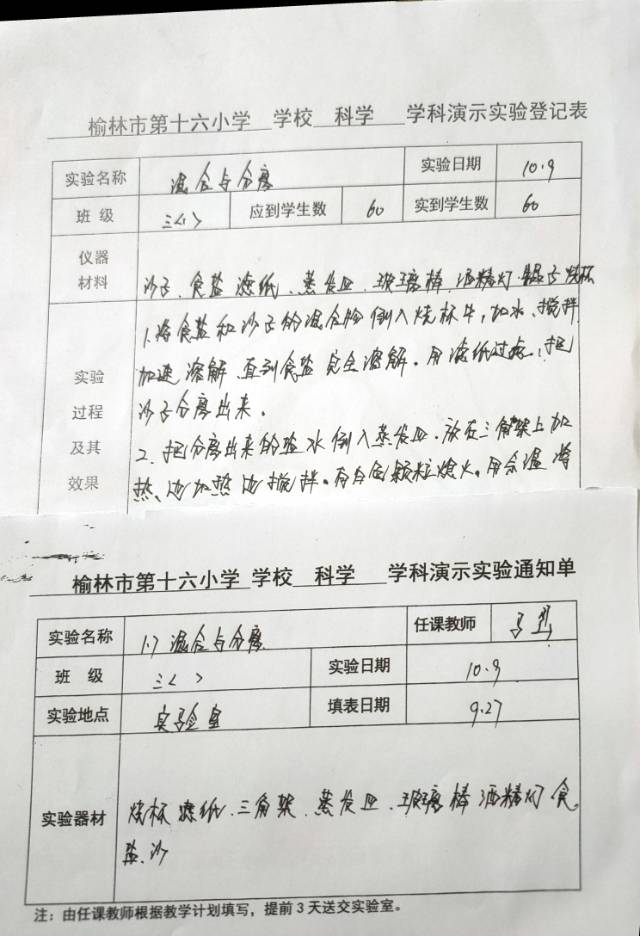 榆林市第十六小学 学校 科学 学科演示实验登记表
实验名称 混合与分离 实验日期 10.9
班 级 三<1> 应到学生数 60 实到学生数 60
仪器
材料 沙子、食盐 滤纸、蒸发皿、玻璃棒、酒精灯 烧杯
1.将食盐和沙子的混合物倒入烧杯中,加水、搅拌
实验 加速溶解 直到食盐完全溶解。用滤纸过滤,把
过程 沙子分离出来。
及其 2、把分离出来的盐水倒入蒸发皿.放在三角架上加
效果 热、边加热边搅拌。有白色颗粒熄火。用余温
榆林市第十六小学 学校 科学 学科演示实验通知单
实验名称 1.7 混合与分离 任课教师 马
班 级 三< > 实验日期 10.9
实验地点 实验室 填表日期 9.27
实验器材 烧杯 滤纸、三角架、蒸发皿、玻璃棒 酒精灯 食
盐、沙
注:由任课教师根据教学计划填写,提前3天送交实验室。